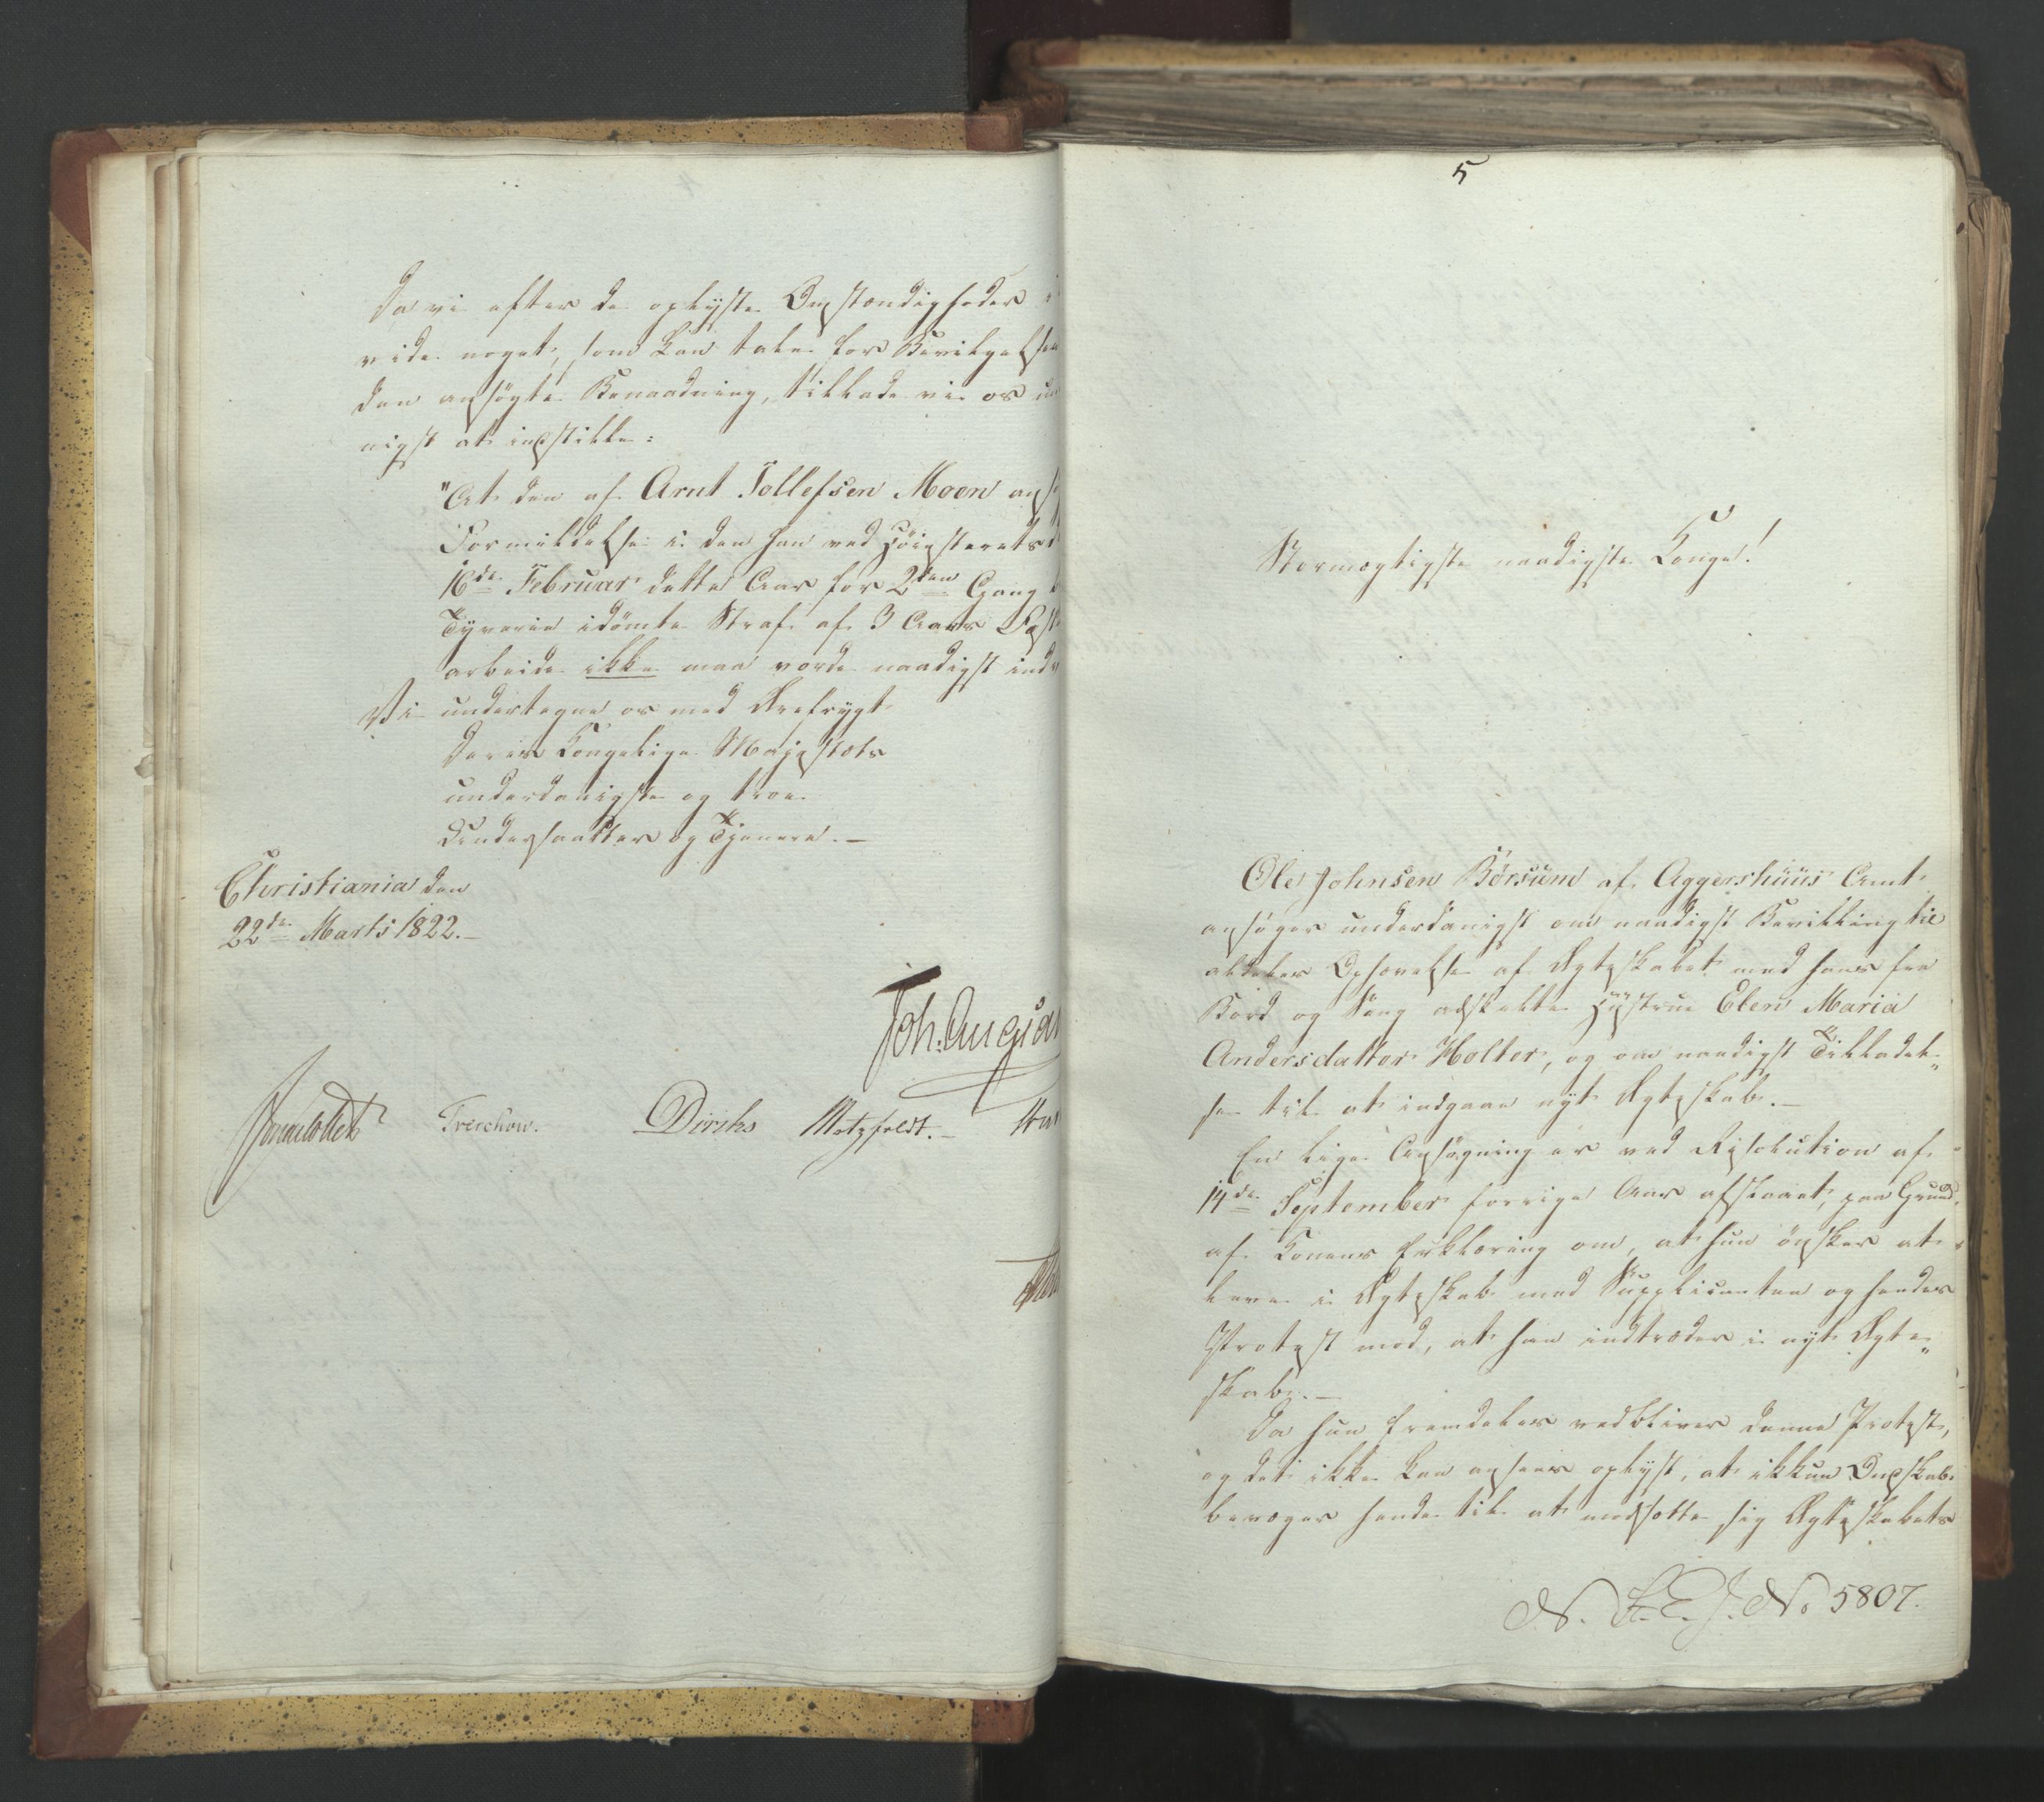 Da vi efter de oplyste Omstændigheder i
vide noget, som kan tale for Bevilgelsen
den ansøgte Benaadning, tillade vi os un
nigst at indstille:
"At den af Arnt Tollefsen Moen ansø
Formildelse i den ham ved Höiesterets d
16de Februar dette Aar for 2den Gang b
Tyverie idömte Straf af 3 Aars Fæst
arbeide ikke maa vorde naadigst indv
Vi undertegne os med Ærefrygt
Deres Kongelige Majestæts
underdanigste og troe
Undersaatter og Tjenere.—
Christiania den
22de Marts 1822.—
Joh. August
Sommerfeldt Treschow. Diriks Motzfeldt.—
5
Stormægtigste naadigste Konge!
Ole Johnsen Börsum af Aggershuus Amt
ansøger underdanigst om naadigst Bevilling til
aldeles Ophævelse af Ægteskabet med hans fra
Bord og Sæng adskilte Hustrue Elen Maria
Andersdatter Holter, og om naadigst Tilladel„
se til at indgaae nyt Ægteskab.—
En lige Ansøgning er ved Resolution af
14de September forrige Aar afslaaet, paa Grund
af Konens Erklæring om, at hun önsker at
leve i Ægteskab med Supplicanten og hendes
Protest mod, at han indtræder i nyt Ægte„
skab.—
Da hun fremdeles vedbliver denne Protest,
og det ikke kan ansees oplyst, at ikkun Ondskab
bevæger hende til at modsætte sig Ægteskabets
N. J. No 5807.